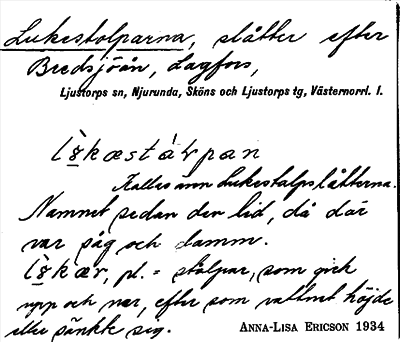 Lukestolparna, slåtter efter
Bredsjöån, Lagfors,
Ljustorps sn, Njurunda, Sköns och Ljustorps tg, Västernorrl. l.
Kallas även Lukestolpslåtterna.
Namnet sedan den tid, då där
var såg och damm.
pl. = stolpar, som gick
upp och ner, efter som vattnet höjde
eller sänkte sig.
ANNA-LISA ERICSON 1934